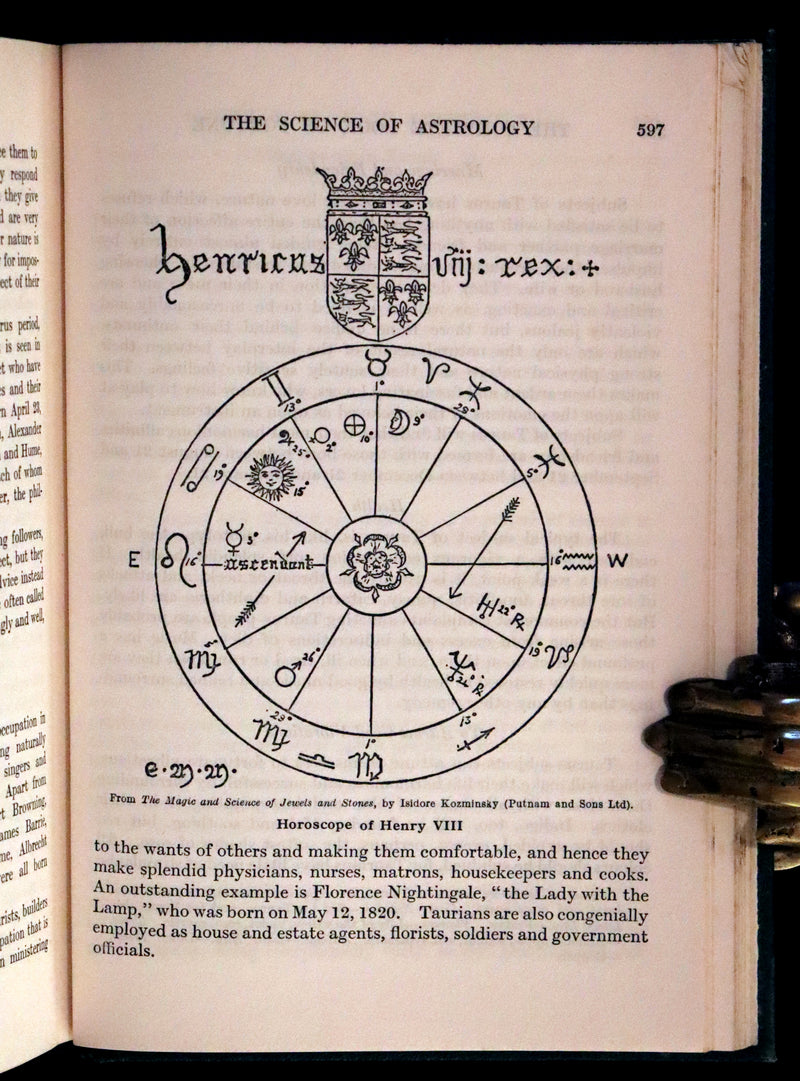 THE SCIENCE OF ASTROLOGY 597
henricus viij: rex:+
♉ 1°
♈
♓ 29°
♓ 5°
♊ 13°
♋ 19°
♃ 25°
♀ 2°
⊕ 10°
☽ 9°
15°
☿ 3°
E ♌ 16° ascendant 16° ♒ W
♅ 22° ℞
19° ♑
♍
♂ 26°
♆ 24° ℞
13° ♐
♍ 29°
♎
1° ♏
e.m.m.
From The Magic and Science of Jewels and Stones, by Isidore Kozminsky (Putnam and Sons Ltd).
Horoscope of Henry VIII
to the wants of others and making them comfortable, and hence they
make splendid physicians, nurses, matrons, housekeepers and cooks.
An outstanding example is Florence Nightingale, “the Lady with the
Lamp,” who was born on May 12, 1820. Taurians are also congenially
employed as house and estate agents, florists, soldiers and government
officials.
e them to
y respond
they give
d are very
r nature is
for impos-
ect of their
rus period,
is seen in
t who have
s and their
n April 23,
, Alexander
and Hume,
ch of whom
er, the phil-
ng followers,
ect, but they
lvice instead
often called
gly and well,
occupation in
ng naturally
singers and
Apart from
t Browning,
ames Barrie,
me, Albrecht
ere all born
rists, builders
pation that is
n ministering